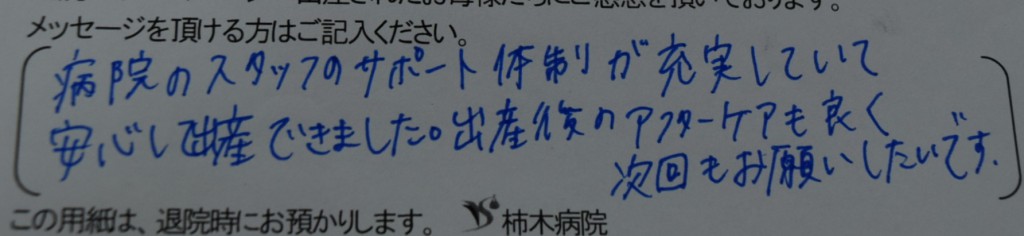 出産されたお母様たちにご感想を頂いております。
メッセージを頂ける方はご記入ください。
病院のスタッフのサポート体制が充実していて
安心して出産できました。出産後のアフターケアも良く
次回もお願いしたいです。
この用紙は、退院時にお預かりします。 柿木病院